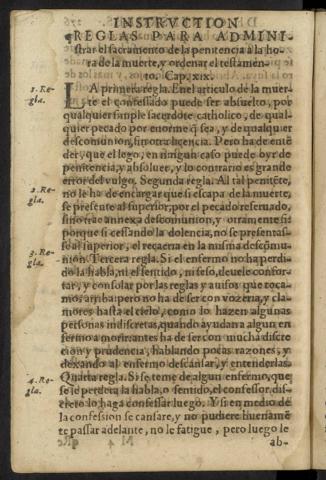 INSTRVCTION
¶REGLAS PARA ADMINI-
strar el sacramento de la penitencia a la ho-
ra de la muerte, y ordenar el testamen-
to. Cap. xix.
1. Re-
gla.
LA primera regla. En el articulo de la muer-
te el confessado puede ser absuelto, por
qualquier simple sacerdote catholico, de qual-
quier pecado por enorme q̃ sea, y de qualquier
descomunion, sin otra licencia. Pero ha de entẽ
der, que el lego, en ningun caso puede oyr de
penitencia, y absoluer, y lo contrario es grande
error del vulgo. Segunda regla. Al tal penitẽte,
2. Re-
gla.
no le ha de encargar que si escapa de la muerte,
se presente al superior, por el pecado reseruado,
sino trae annexa descomunion, y otramente si:
porque si cessando la dolencia, no se presentas-
se al superior, el recaerra en la misma descõmu-
3. Re-
gla.
nion. Tercera regla. Si el enfermo no ha perdi-
do la habla, ni el sentido, ni seso, deuele confor-
tar, y consolar por las reglas y auisos que toca-
mos arriba: pero no ha de ser con vozeria, y cla-
mores hasta el cielo, como lo hazen algunas
personas indiscretas, quando ayudan a algun en
fermo a morir: antes ha de ser con mucha discre
cion y prudencia, hablando pocas razones, y
dexando al enfermo descansar, y entenderlas.
4. Re-
gla.
Quarta regla. Si se teme de algun enfermo, que
se le perdera la habla, o sentido, el confessor, dis-
creto lo haga confessar luego. Y si en medio de
la confession se cansare, y no pudiere buenamẽ
te passar adelante, no le fatigue, pero luego le
ab-